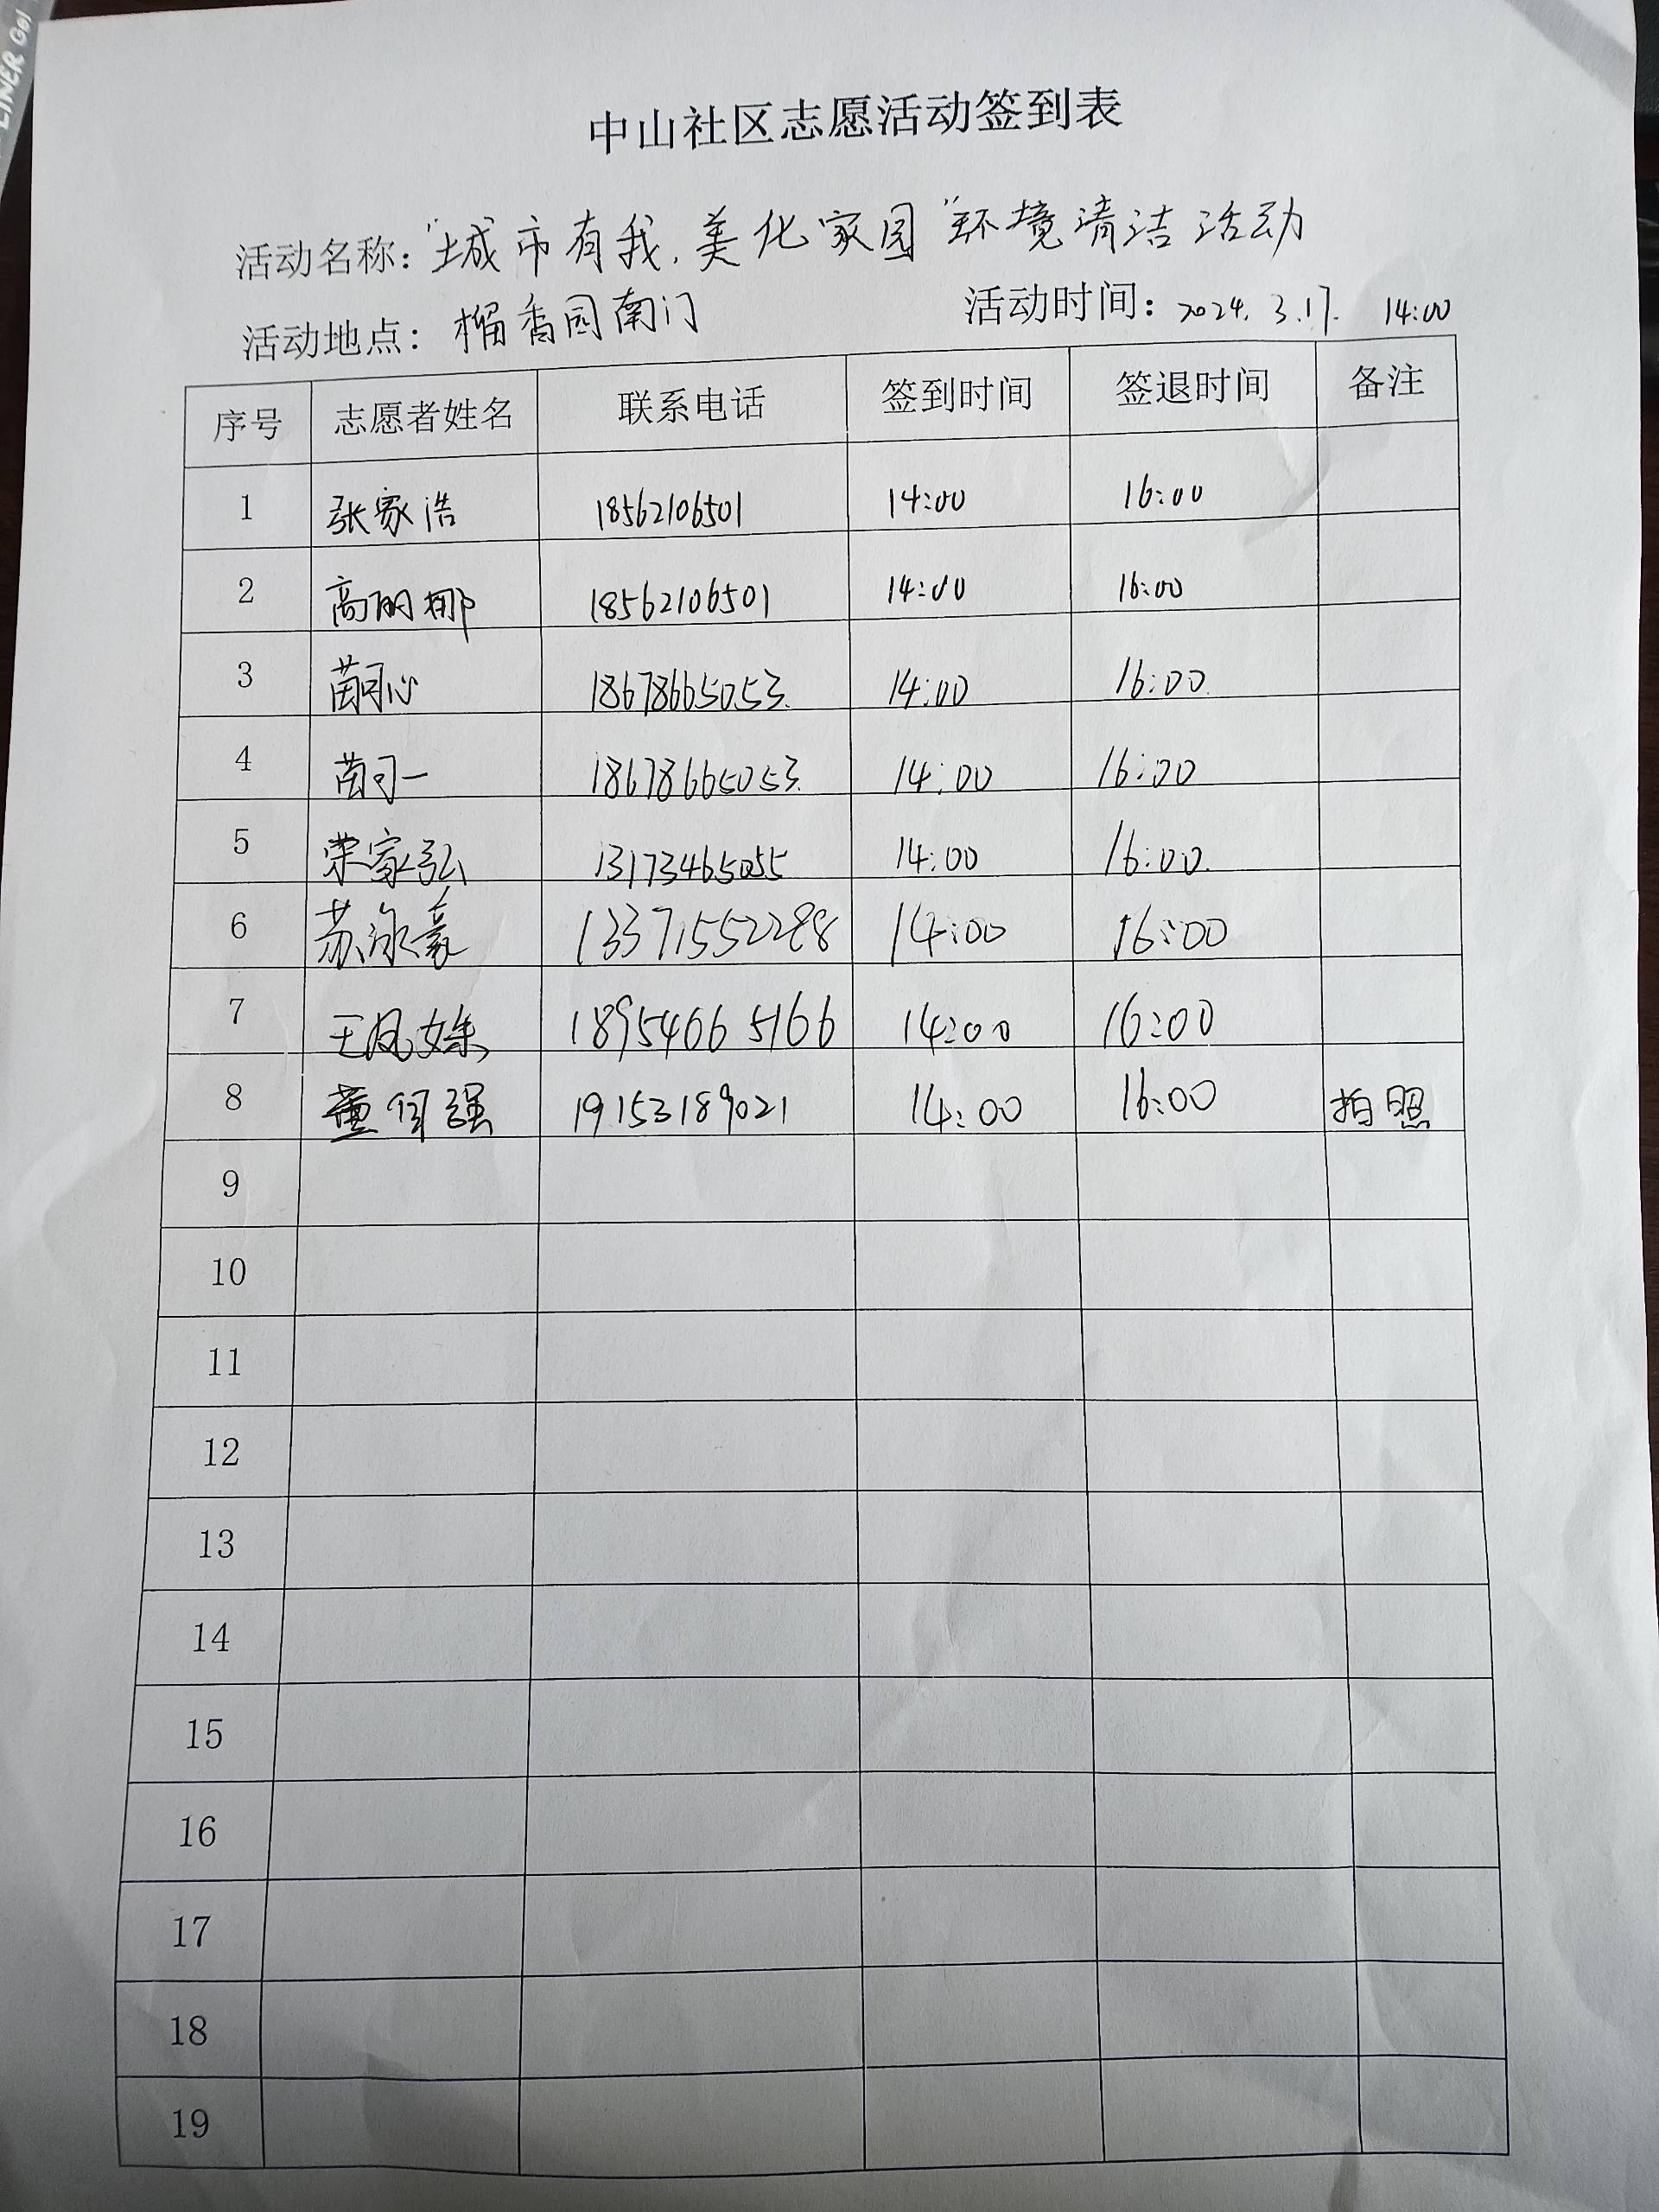 LINER Gel
中山社区志愿活动签到表
活动名称："城市有我.美化家园"环境清洁活动
活动地点：榴香园南门 活动时间：2024.3.17. 14:00
序号 志愿者姓名 联系电话 签到时间 签退时间 备注
1 张家浩 18562106501 14:00 16:00
2 高丽娜 18562106501 14:00 16:00
3 蔄可心 18678665053 14:00 16:00
4 蔄可一 18678665053 14:00 16:00
5 荣家弘 13173465055 14:00 16:00
6 苏泳豪 13371552298 14:00 16:00
7 王凤姝 18954665166 14:00 16:00
8 董 强 19153189021 14:00 16:00 拍照
9
10
11
12
13
14
15
16
17
18
19